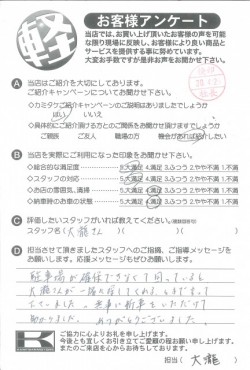 軽
お客様アンケート
当店では、お買い上げ頂いたお客様の声を可能
な限り現場に反映し、お客様により良い商品と
サービスを提供する事に努めています。
大変お手数ですが是非お声をお聞かせ下さい。
A 当店はご紹介を大切にしております。
ご紹介キャンペーンについてお聞かせ下さい
◇カミタケご紹介キャンペーンのご説明はありましたでしょうか
はい いいえ
◇具体的にご紹介頂ける方とのご関係をお聞かせ頂けますでしょうか
ご親戚 ご友人 職場の方 機会があれば紹介したい
B 当店を実際にご利用になった印象をお聞かせ下さい。
◇総合的な満足度 5.大満足 4.満足 3.ふつう 2.やや不満 1.不満
◇スタッフの対応 5.大満足 4.満足 3.ふつう 2.やや不満 1.不満
◇お店の雰囲気、清掃 5.大満足 4.満足 3.ふつう 2.やや不満 1.不満
◇納車時のお車の状態 5.大満足 4.満足 3.ふつう 2.やや不満 1.不満
C 評価したいスタッフがいれば教えてください。
スタッフ名( 大瀧さん )
D 担当させて頂きましたスタッフへのご指摘、ご指導メッセージを
お願いします。応援メッセージもぜひお願いします。
駐車場が確保できなくて困っている時
大瀧さんが一緒に探してくれました
助かりました。ありがとうございました。
K
ご協力に心よりお礼を申し上げます。
今後とも宜しくお引き立てご愛顧の程お願い申し上げます。
またのご来店を心からお待ちしております。
担当( 大瀧 )